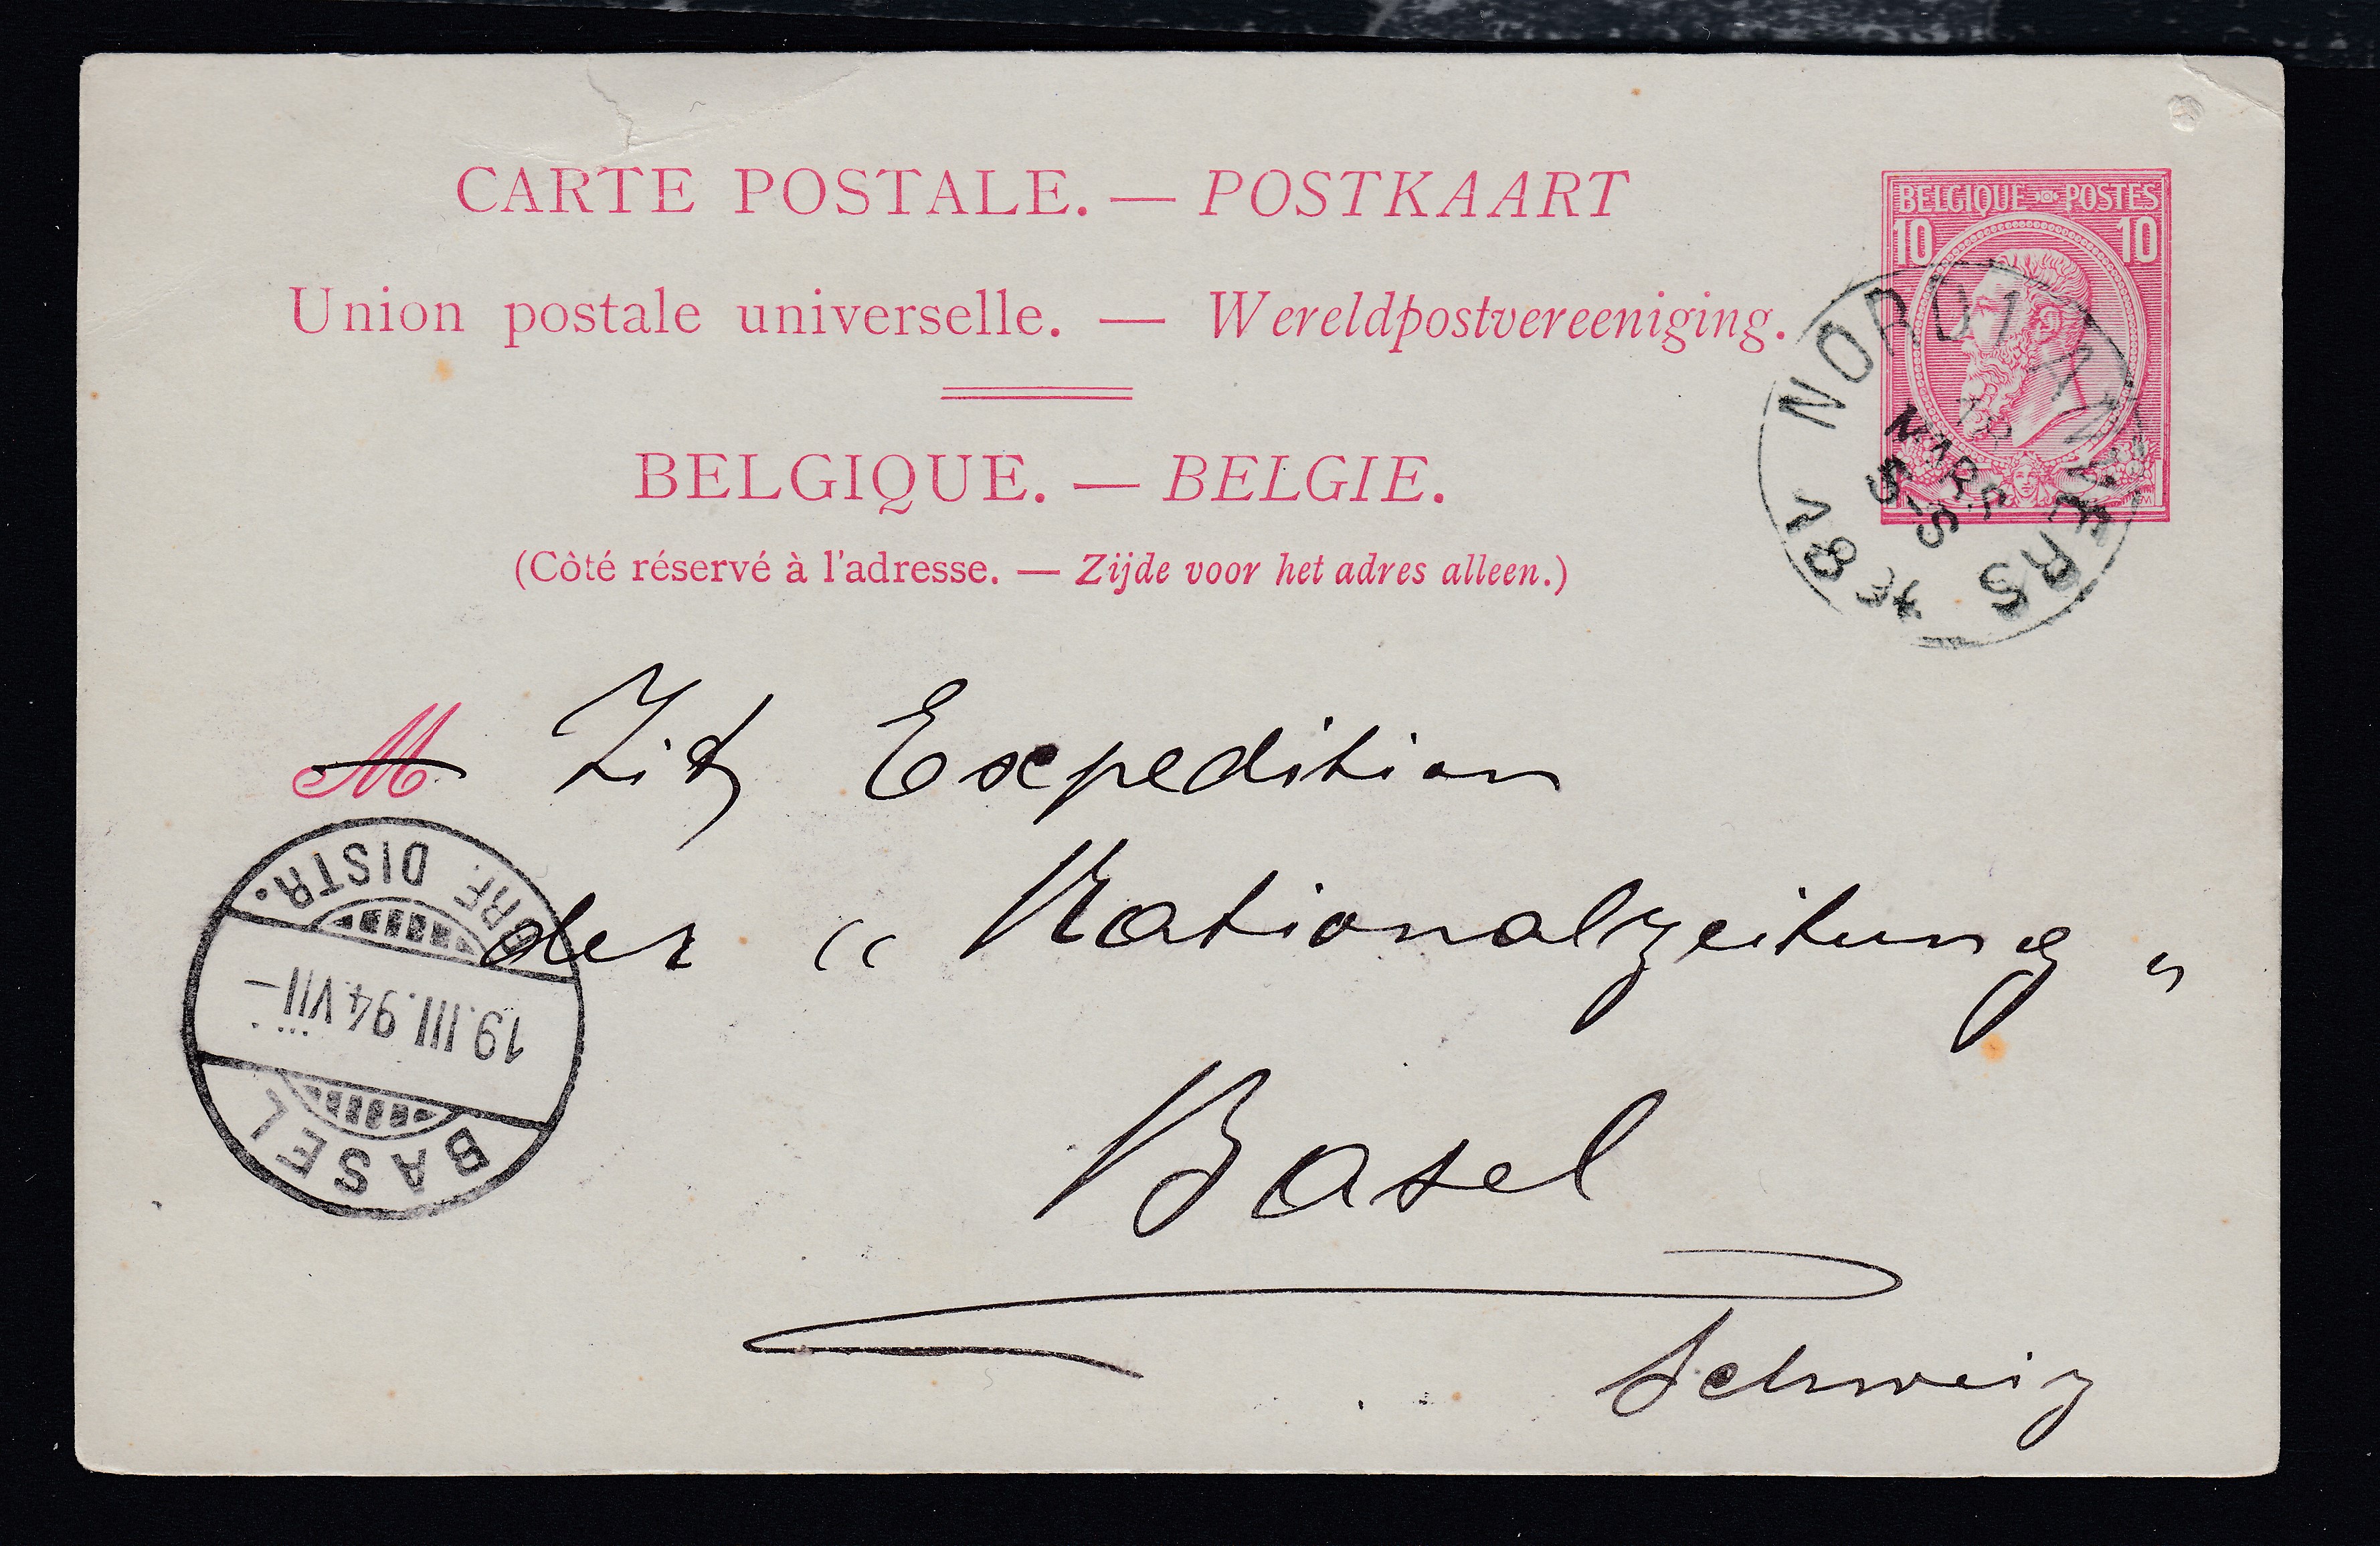 CARTE POSTALE. — POSTKAART
Union postale universelle. — Wereldpostvereeniging.
BELGIQUE. — BELGIE.
(Côté réservé à l'adresse. — Zijde voor het adres alleen.)
BELGIQUE POSTES
10 10
NORD ANVERS
MARS
M Expedition
der „ Nationalzeitung "
Basel
Schweiz
BRF. DISTR.
19.III.94.VII–
BASEL